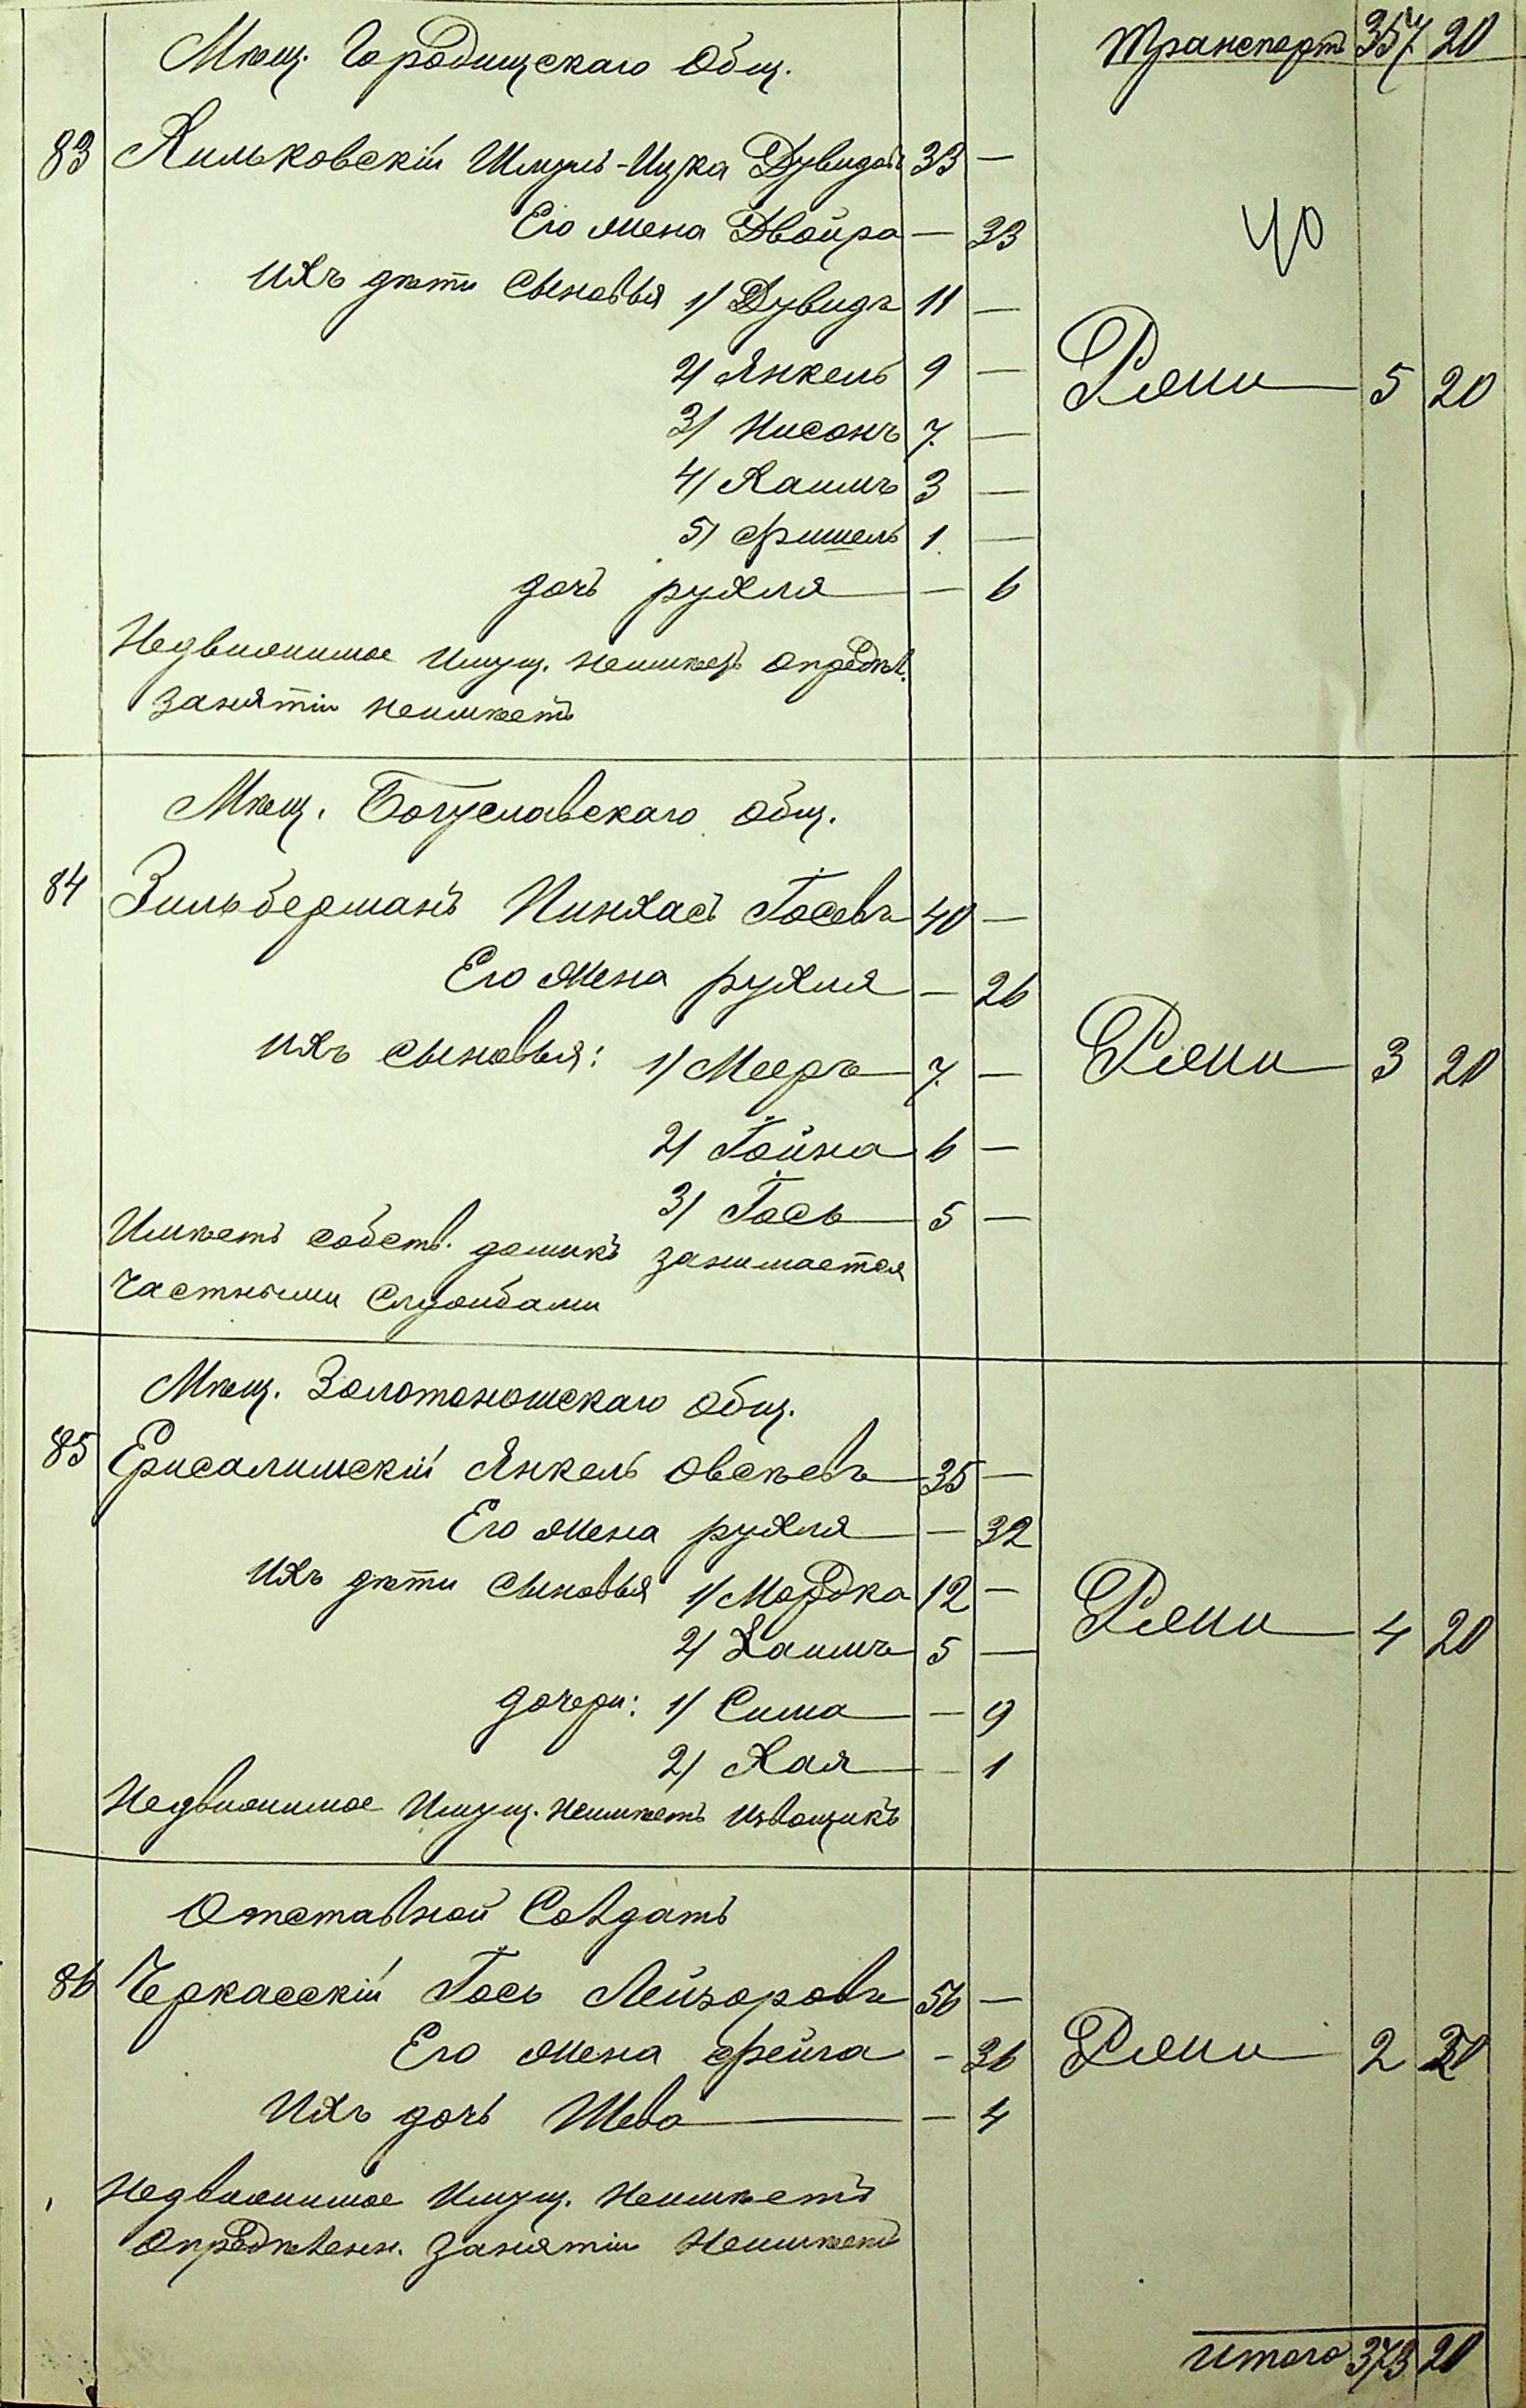 Транспортъ 357 20
Мѣщ. Городищскаго Общ.
83 Хильковскій Шмуль-Ицка Дувидовъ 33 —
Его жена Двойра — 33
40
ихъ дѣти сыновья 1/ Дувидъ 11 —
2/ Янкель 9 — 5 20
3/ Нисонъ 7 —
4/ Хаимъ 3 —
5/ Фишель 1 —
дочь рухля — 6
Недвижимое Имущ. неимѣетъ опредѣл.
занятіи неимѣетъ
Мѣщ. Богуславскаго Общ.
84 Зильберманъ Пинхасъ Іосевъ 40 —
Его жена рухля — 26
ихъ сыновья: 1/ Мееръ 7 — 3 20
2/ Іойна 6 —
3/ Іось 5 —
Имѣетъ собств. домикъ занимается
частными службами
Мѣщ. Золотоношскаго Общ.
85 Ерусалимскій Янкель Овсѣевъ 35 —
Его жена рухля — 32
ихъ дѣти сыновья 1/ Мордка 12 — 4 20
2/ Хаимъ 5 —
дочери: 1/ Сима — 9
2/ Хая — 1
Недвижимое Имущ. неимѣетъ извощикъ
Отставной Солдатъ
86 Черкасскій Іось Лейзоровъ 56 —
Его жена Фейга — 36 2 20
Ихъ дочь Шева — 4
Недвижимое Имущ. Неимѣетъ
Опредѣленн. занятіи Неимѣетъ
Итого 373 20